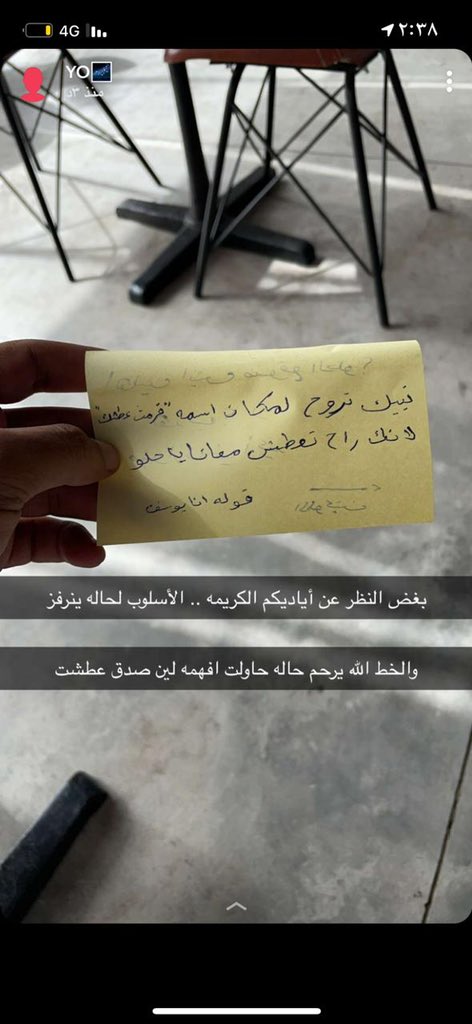 4G
٢:٣٨
YO
منذ ٣د
نبيك تروح لمكان اسمه "قرمت عطشك"
لانك راح تعطش معانا يا حلو
قوله انا يوسف
بغض النظر عن أياديكم الكريمه .. الأسلوب لحاله ينرفز
والخط الله يرحم حاله حاولت افهمه لين صدق عطشت